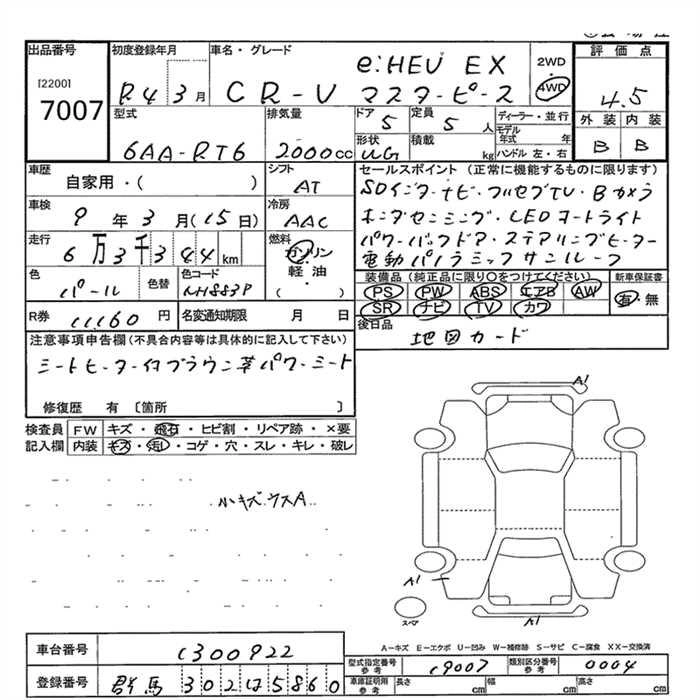 出品番号
[2200]
7007
初度登録年月
R4 3月
車名・グレード
e:HEV EX
CR-V マスターピース
2WD
4WD
評価点
4.5
外装 内装
B B
型式
6AA-RT6
排気量
2000cc
ドア
5
定員
5人
ディーラー・並行
モデル年式 年
形状
WG
積載
kg
ハンドル 左・右
車歴
自家用・( )
シフト
AT
車検
9年3月(15日)
冷房
AAC
走行
6万3千344km
燃料
ガソリン
軽・油
( )
色
パール
色替
色コード
NH883P
R券
11160円
名変通知期限 月 日
セールスポイント (正常に機能するものに限ります)
SDインターナビ・フルセグTV・Bカメラ
ホンダセンシング・LEDオートライト
パワーバックドア・ステアリングヒーター
電動パノラミックサンルーフ
装備品 (純正品に限り○をつけてください)
PS PW ABS エアB AW
SR ナビ TV カワ
新車保証書
有・無
後日品
地図カード
注意事項申告欄(不具合内容等は具体的に記入して下さい)
シートヒーター付ブラウン革パワーシート
修復歴 有 〔箇所 〕
検査員記入欄
FW キズ・飛石・ヒビ割・リペア跡・×要
内装 キズ・汚レ・コゲ・穴・スレ・キレ・破レ
小キズ ウスA
A1
A1
A1
スペア
A-キズ E-エクボ U-凹み W-補修跡 S-サビ C-腐食 XX-交換済
車台番号
1300922
登録番号
群馬 302 は 5860
型式指定番号
参考
19007
類別区分番号
参考
0004
車庫証明用
参考
長さ cm
幅 cm
高さ cm